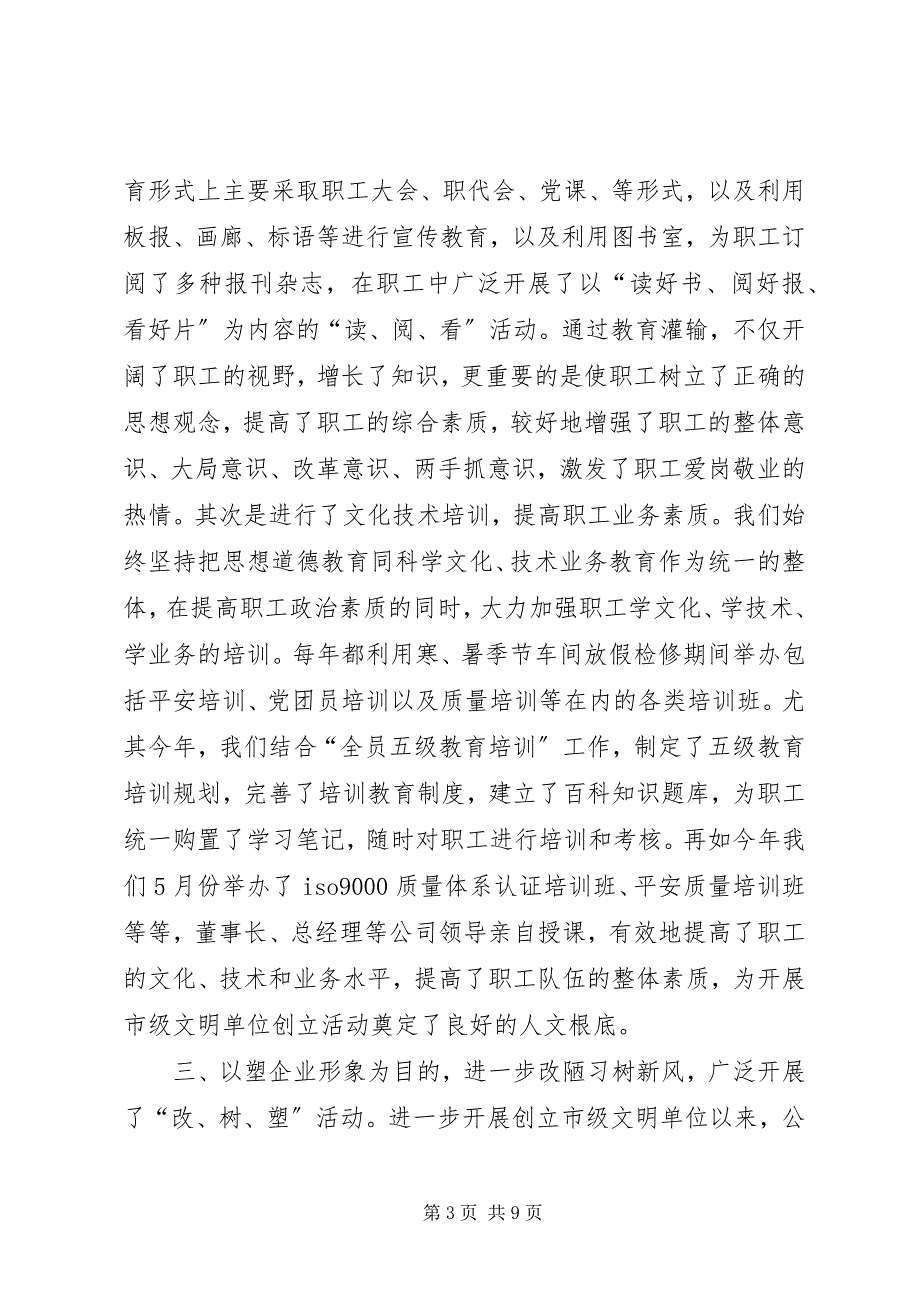 育形式上主要采取职工大会、职代会、党课、等形式，以及利用
板报、画廊、标语等进行宣传教育，以及利用图书室，为职工订
阅了多种报刊杂志，在职工中广泛开展了以“读好书、阅好报、
看好片〞为内容的“读、阅、看〞活动。通过教育灌输，不仅开
阔了职工的视野，增长了知识，更重要的是使职工树立了正确的
思想观念，提高了职工的综合素质，较好地增强了职工的整体意
识、大局意识、改革意识、两手抓意识，激发了职工爱岗敬业的
热情。其次是进行了文化技术培训，提高职工业务素质。我们始
终坚持把思想道德教育同科学文化、技术业务教育作为统一的整
体，在提高职工政治素质的同时，大力加强职工学文化、学技术、
学业务的培训。每年都利用寒、暑季节车间放假检修期间举办包
括平安培训、党团员培训以及质量培训等在内的各类培训班。尤
其今年，我们结合“全员五级教育培训〞工作，制定了五级教育
培训规划，完善了培训教育制度，建立了百科知识题库，为职工
统一购置了学习笔记，随时对职工进行培训和考核。再如今年我
们 5 月份举办了 iso9000 质量体系认证培训班、平安质量培训班
等等，董事长、总经理等公司领导亲自授课，有效地提高了职工
的文化、技术和业务水平，提高了职工队伍的整体素质，为开展
市级文明单位创立活动奠定了良好的人文根底。
三、以塑企业形象为目的，进一步改陋习树新风，广泛开展
了“改、树、塑〞活动。进一步开展创立市级文明单位以来，公
第 3 页 共 9 页